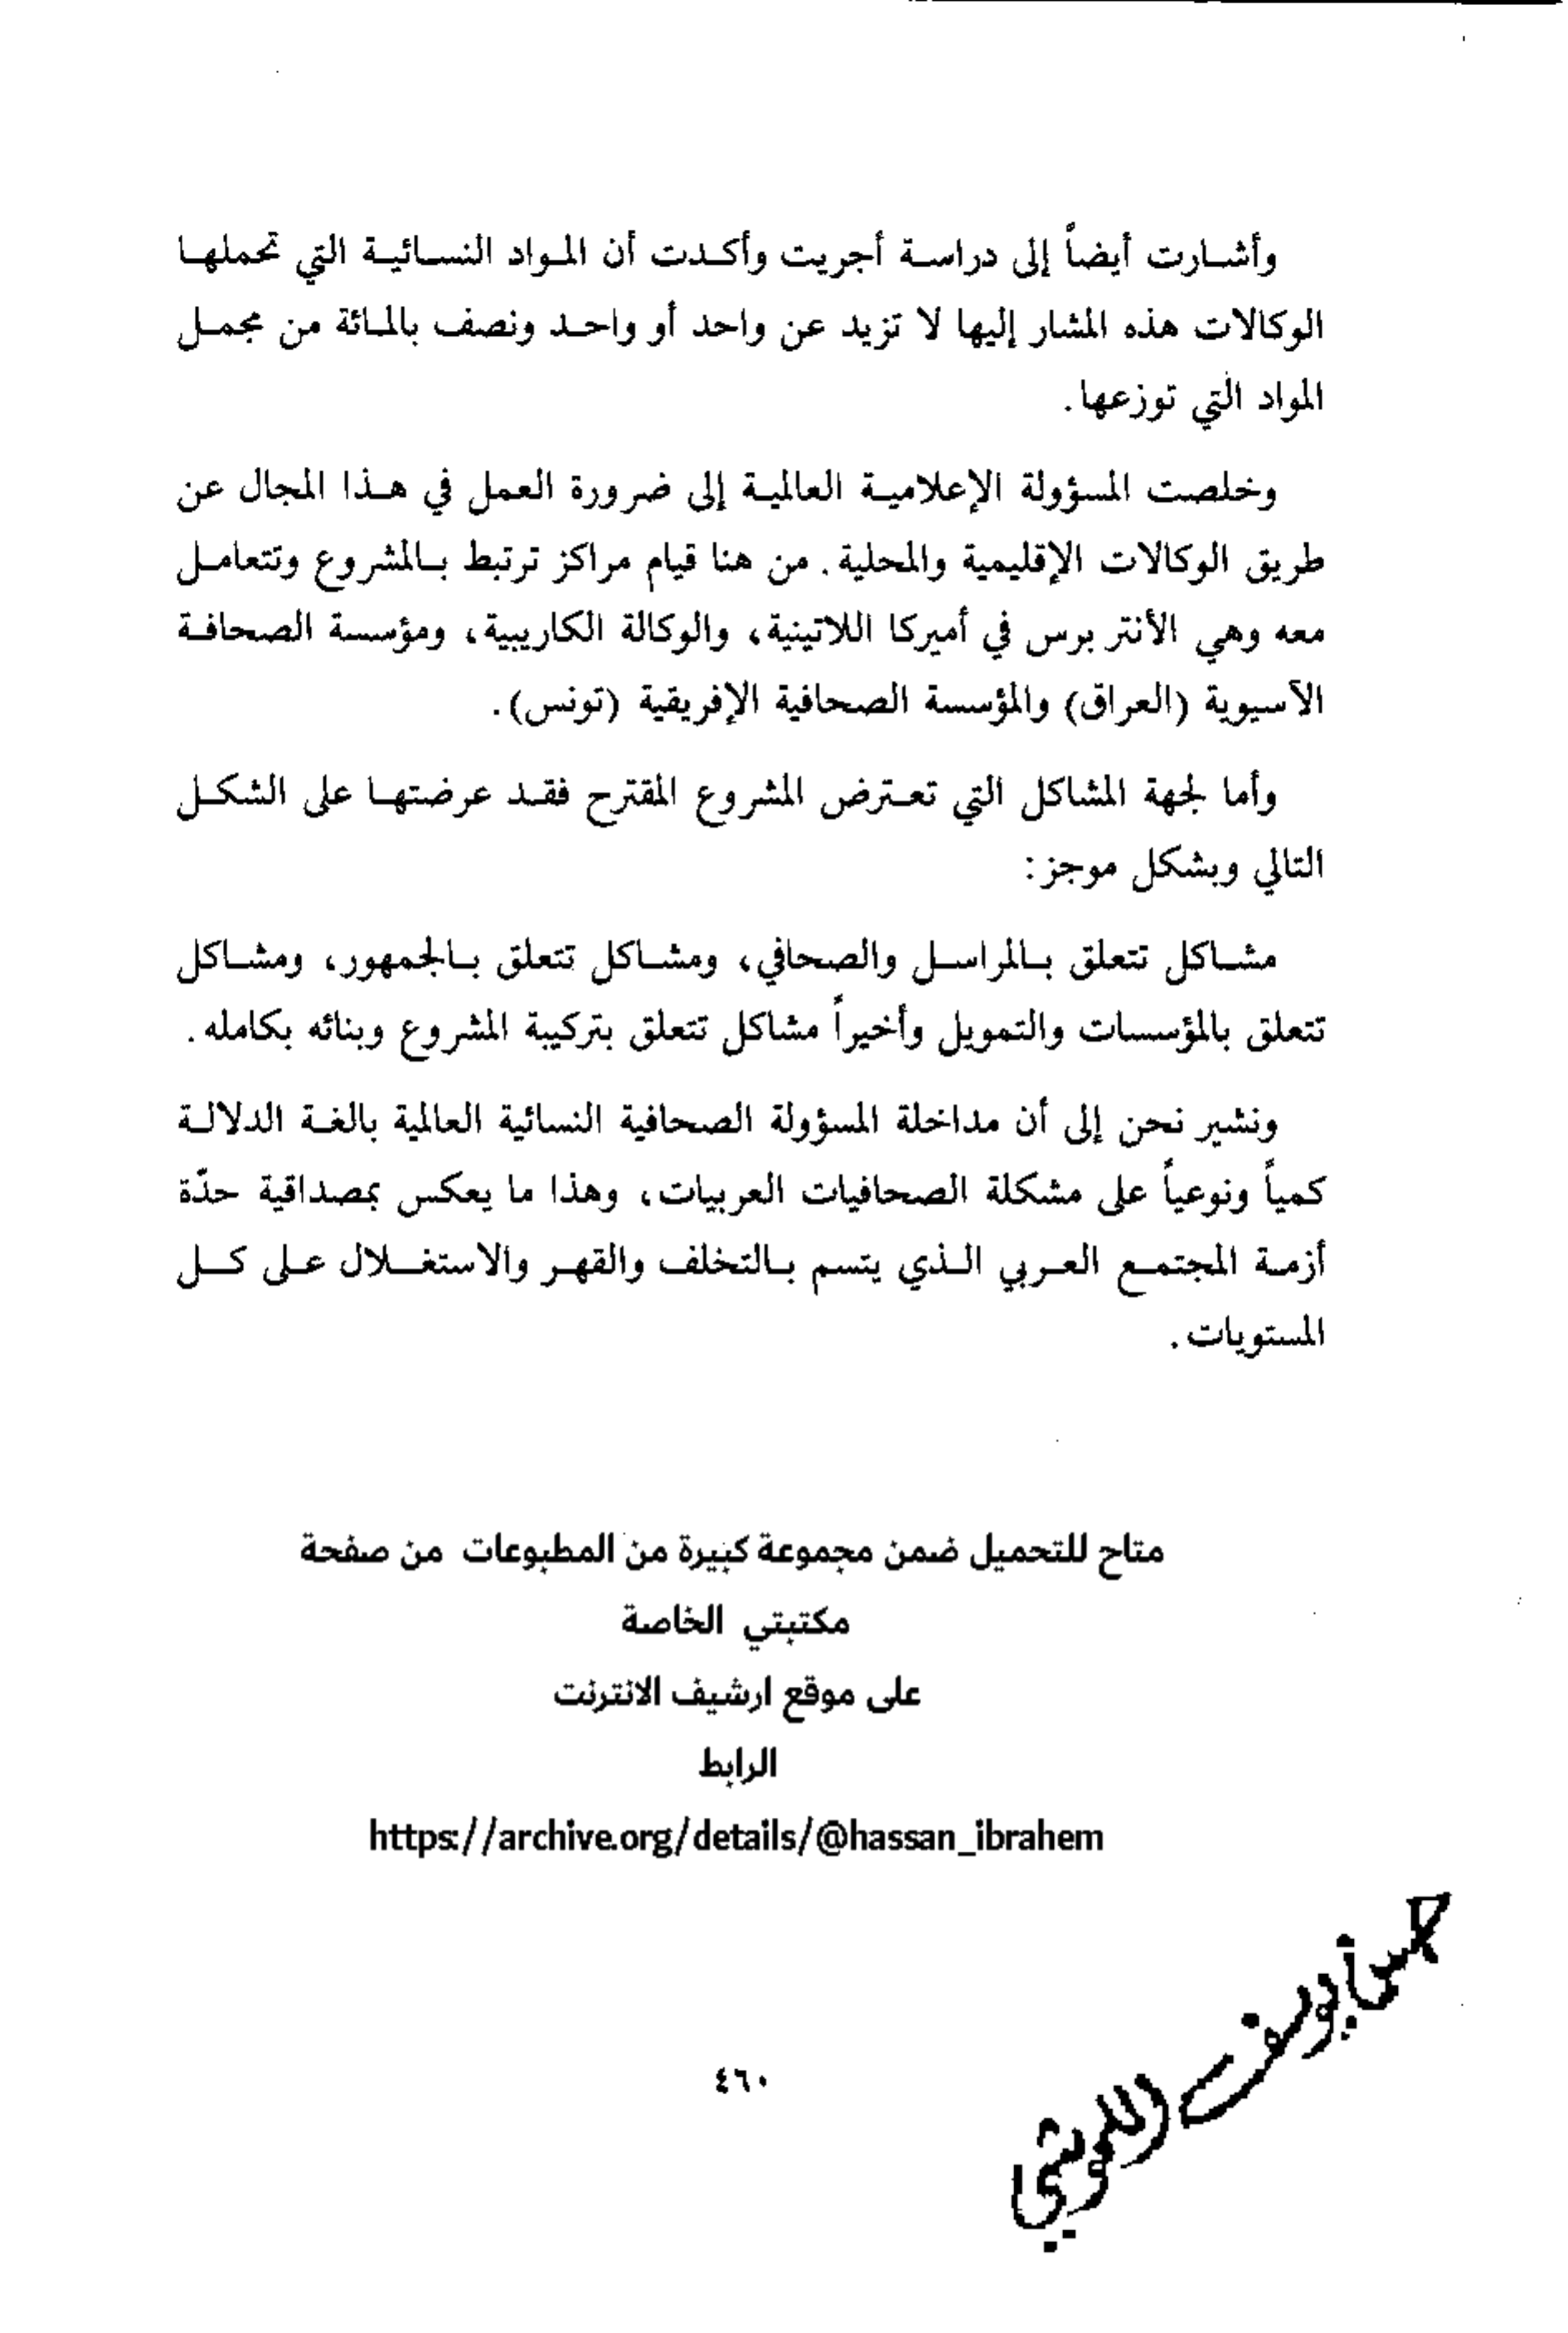 وأشارت أيضاً إلى دراسة أجريت وأكدت أن المواد النسائية التي تحملها
الوكالات هذه المشار إليها لا تزيد عن واحد أو واحد ونصف بالمائة من مجمل
المواد التي توزعها.
وخلصت المسؤولة الإعلامية العالمية إلى ضرورة العمل في هذا المجال عن
طريق الوكالات الإقليمية والمحلية. من هنا قيام مراكز ترتبط بالمشروع وتتعامل
معه وهي الأنتر برس في أميركا اللاتينية، والوكالة الكاريبية، ومؤسسة الصحافة
الآسيوية (العراق) والمؤسسة الصحافية الإفريقية (تونس).
وأما لجهة المشاكل التي تعترض المشروع المقترح فقد عرضتها على الشكل
التالي وبشكل موجز:
مشاكل تتعلق بالمراسل والصحافي، ومشاكل تتعلق بالجمهور، ومشاكل
تتعلق بالمؤسسات والتمويل وأخيراً مشاكل تتعلق بتركيبة المشروع وبنائه بكامله.
ونشير نحن إلى أن مداخلة المسؤولة الصحافية النسائية العالمية بالغة الدلالة
كمياً ونوعياً على مشكلة الصحافيات العربيات، وهذا ما يعكس بمصداقية حدّة
أزمة المجتمع العربي الذي يتسم بالتخلف والقهر والاستغلال على كل
المستويات.
متاح للتحميل ضمن مجموعة كبيرة من المطبوعات من صفحة
مكتبتي الخاصة
على موقع ارشيف الانترنت
الرابط
https://archive.org/details/@hassan_ibrahem
٤٦٠